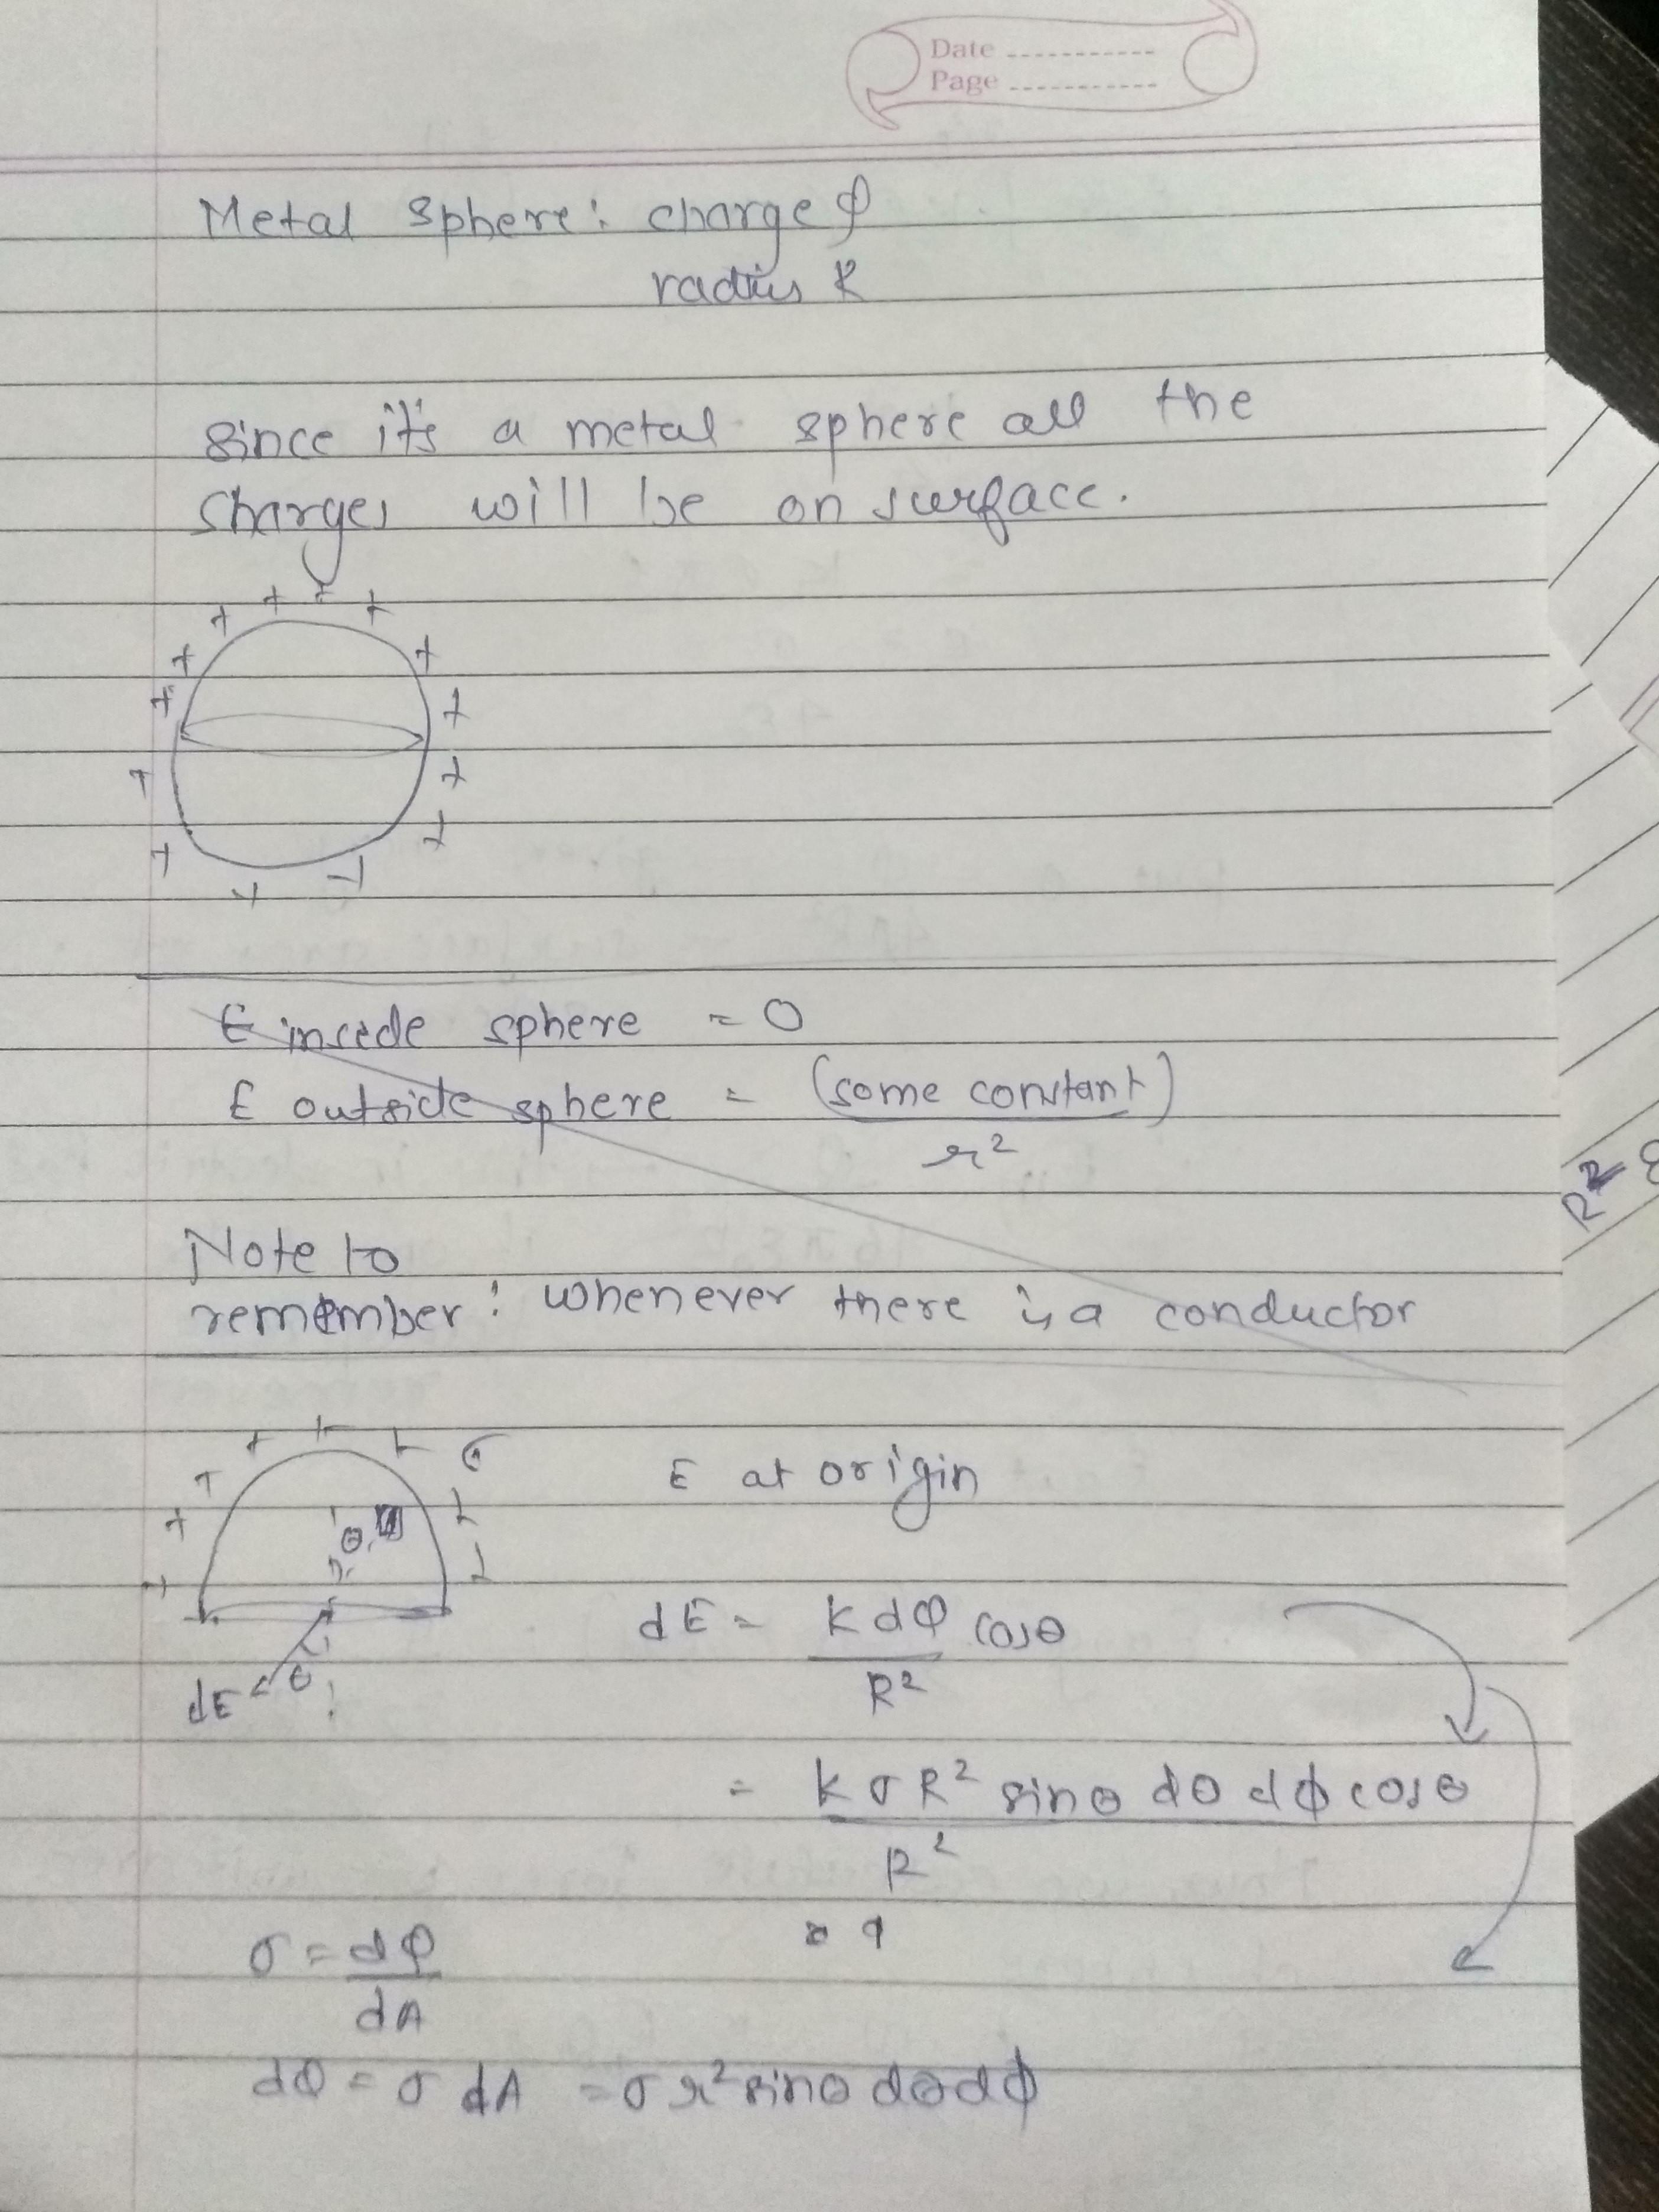 Date
Page
Metal Sphere: charge Q
radius R
since it's a metal sphere all the
charges will be on surface.
+ + + +
+ +
+ +
+ +
+ +
+ +
E inside sphere = 0
E outside sphere = (some constant)
r²
Note to
remember: whenever there is a conductor
R²
+ + + σ
+ θ +
+ +
+
E at origin
dE = K dQ cosθ
R²
dE θ
= K σ R² sinθ dθ dϕ cosθ
R²
σ = dQ
dA
dQ = σ dA = σ r² sinθ dθ dϕ